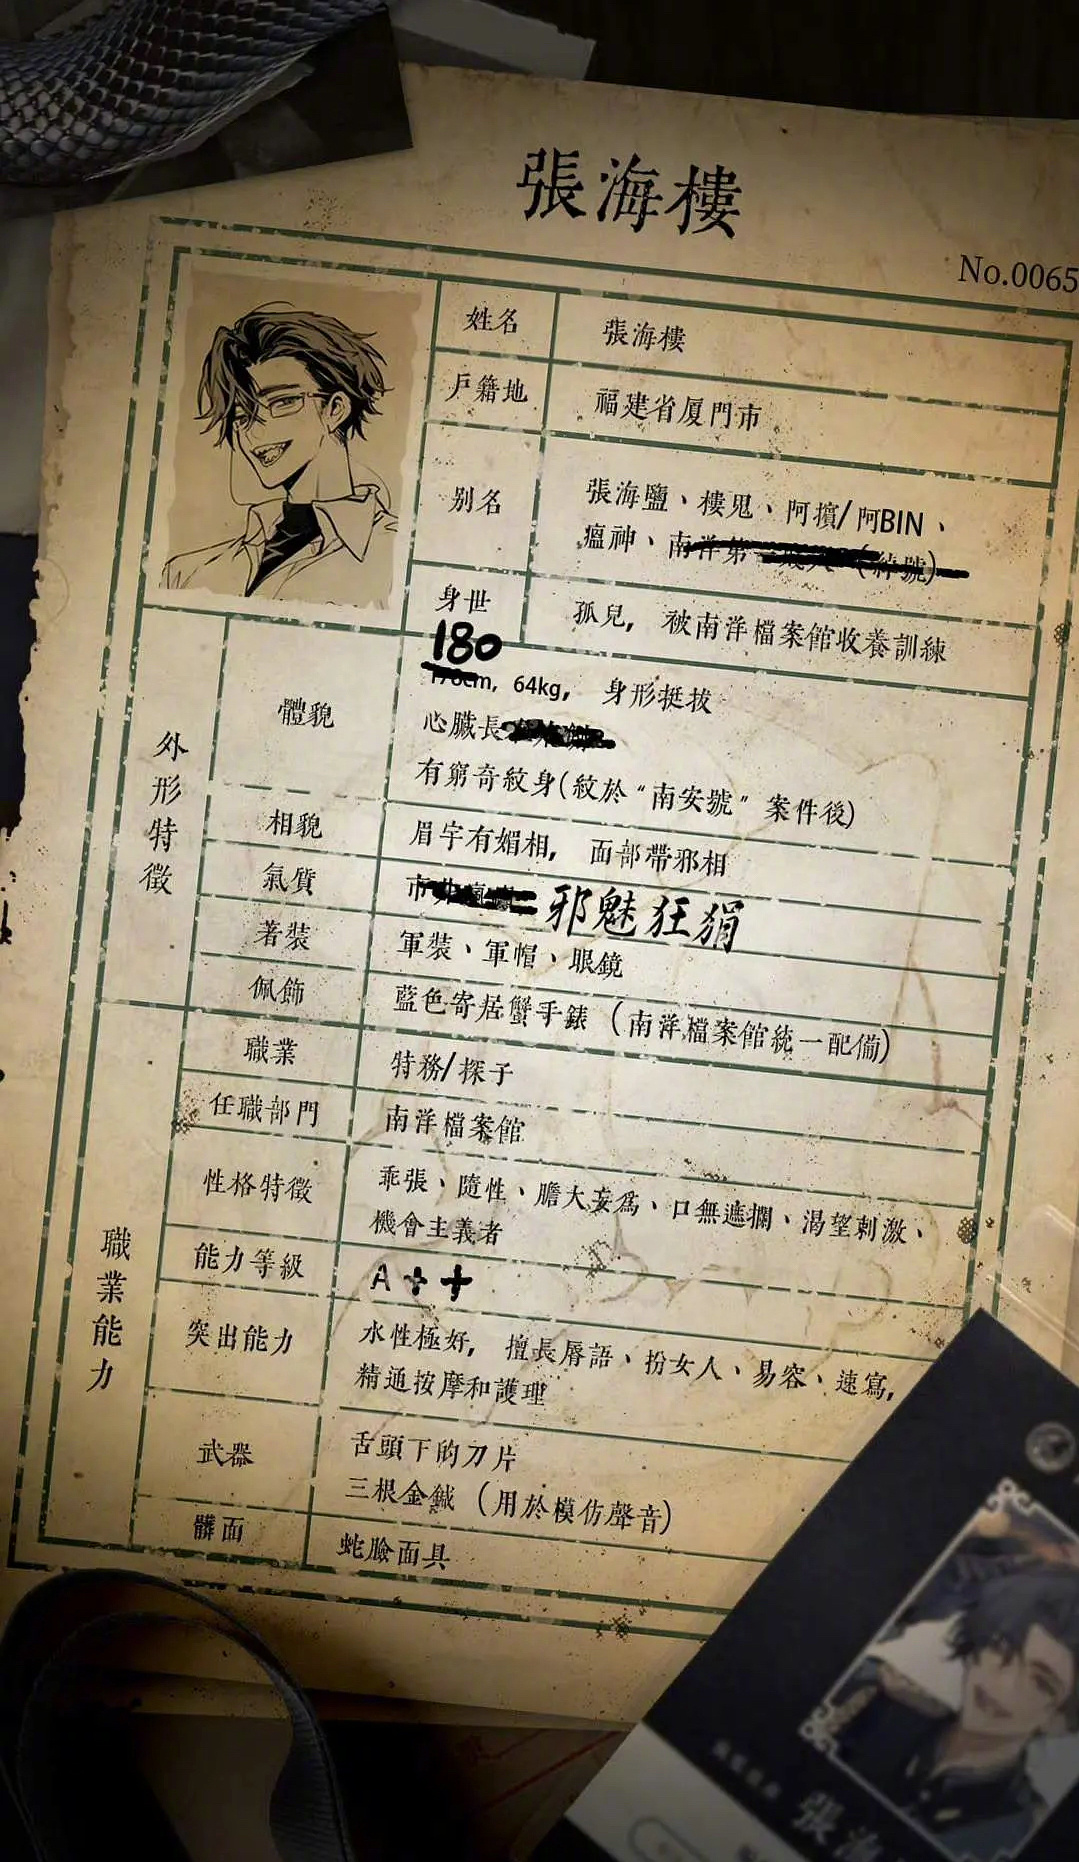 張海樓
No.0065
姓名
張海樓
戶籍地
福建省厦門市
别名
張海鹽、樓鬼、阿擯/阿BIN、
瘟神、南洋第
身世
孤兒, 被南洋檔案館收養訓練
外形特徵
體貌
180
cm, 64kg, 身形挺拔
心臟長
有窮奇紋身(紋於“南安號”案件後)
相貌
眉宇有媚相, 面部帶邪相
氣質
市 邪魅狂狷
著裝
軍裝、軍帽、眼鏡
佩飾
藍色寄居蟹手錶 (南洋檔案館統一配備)
職業能力
職業
特務/探子
任職部門
南洋檔案館
性格特徵
乖張、隨性、膽大妄爲、口無遮攔、渴望刺激、
機會主義者
能力等級
A++
突出能力
水性極好, 擅長唇語、扮女人、易容、速寫,
精通按摩和護理
武器
舌頭下的刀片
三根金鍼 (用於模仿聲音)
髒面
蛇臉面具
張海